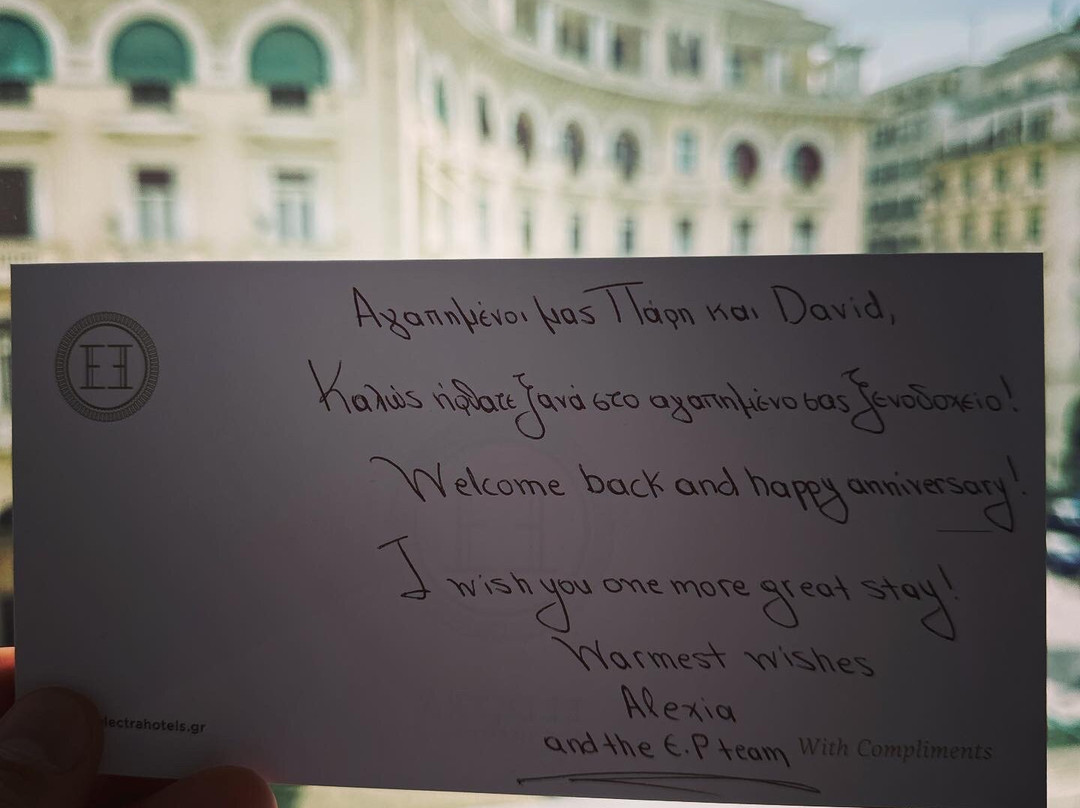 Αγαπημένοι μας Πάρη και David,
Καλώς ήρθατε ξανά στο αγαπημένο σας ξενοδοχείο!
Welcome back and happy anniversary!
I wish you one more great stay!
Warmest wishes
Alexia
and the E.P team
With Compliments
lectrahotels.gr